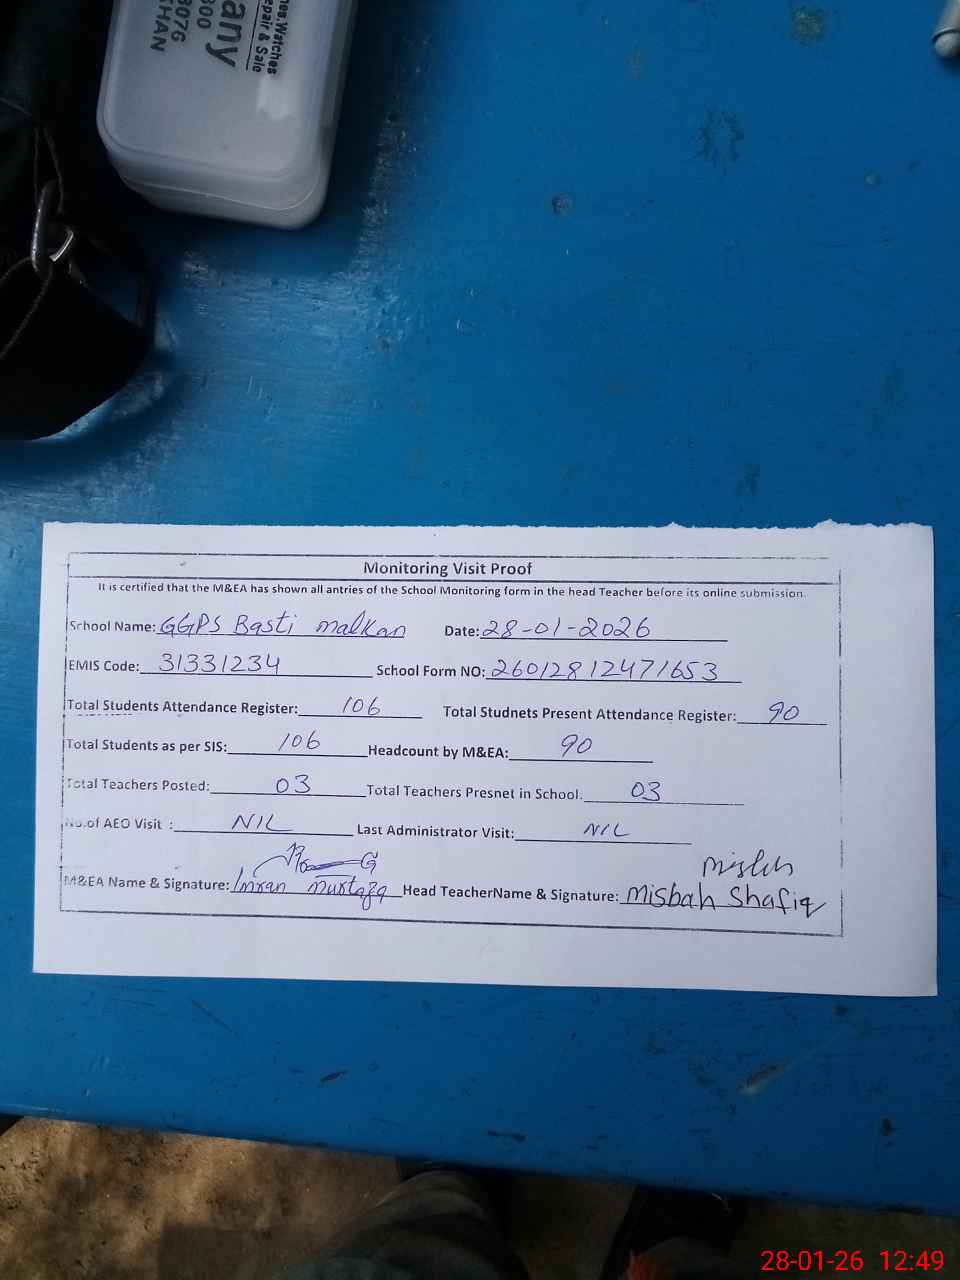 nes, Watches
epair & Sale
any
300
307G
SHAN
Monitoring Visit Proof
It is certified that the M&EA has shown all antries of the School Monitoring form in the head Teacher before its online submission.
School Name: GGPS Basti malkan Date: 28-01-2026
EMIS Code: 31331234 School Form NO: 26012812471653
Total Students Attendance Register: 106 Total Studnets Present Attendance Register: 90
Total Students as per SIS: 106 Headcount by M&EA: 90
Total Teachers Posted: 03 Total Teachers Presnet in School. 03
No.of AEO Visit : NIL Last Administrator Visit: NIL
M&EA Name & Signature: Imran Murtaza Head TeacherName & Signature: Misbah Shafiq
28-01-26 12:49